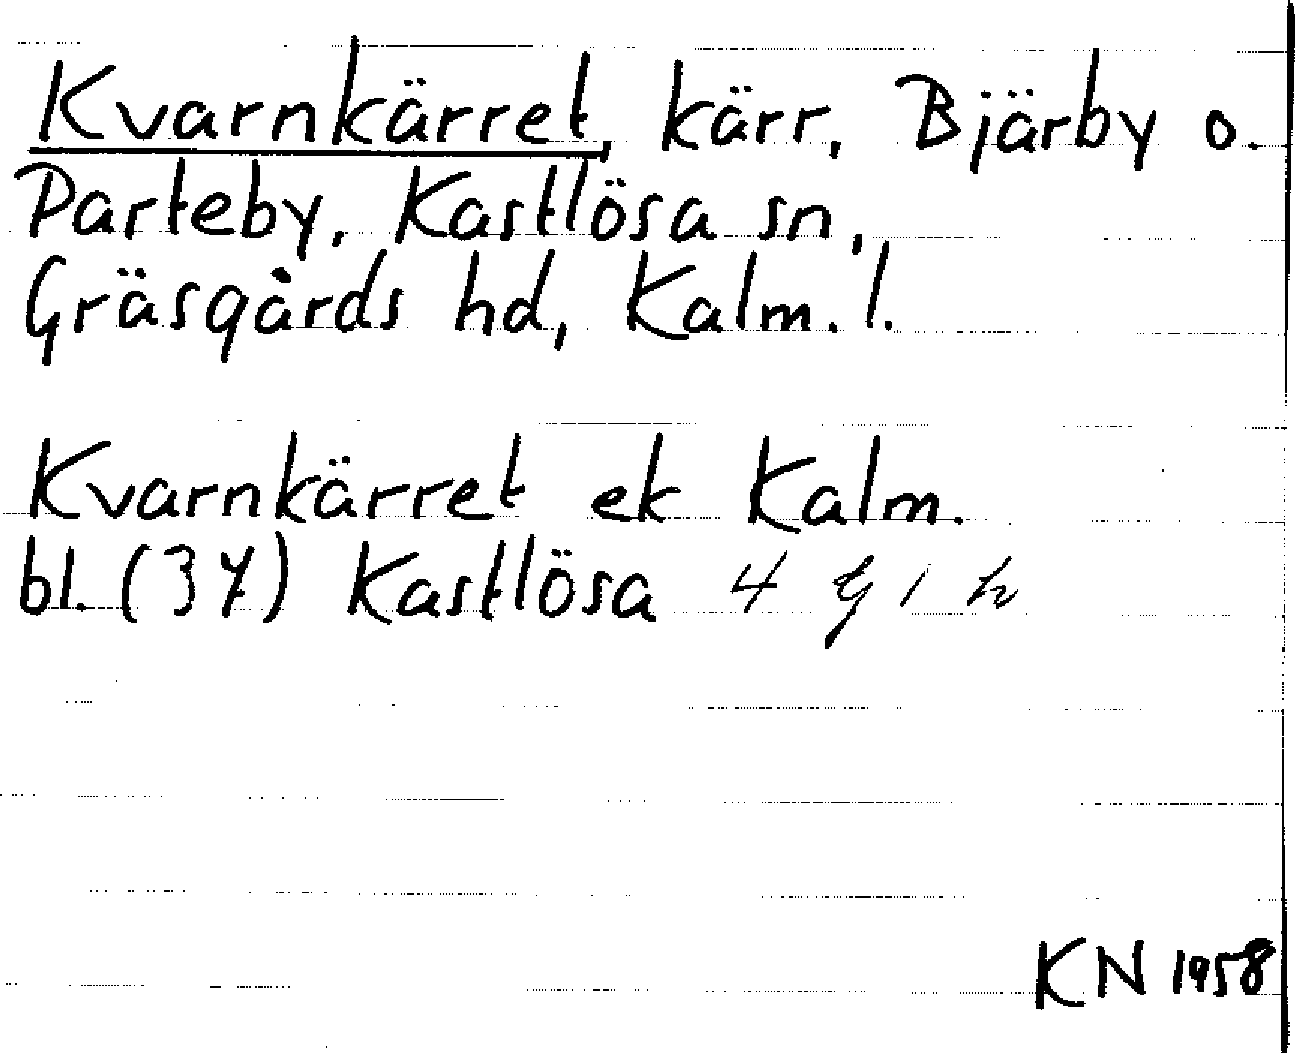 Kvarnkärret, kärr, Bjärby o.
Parteby, Kastlösa sn,
Gräsgårds hd, Kalm. l.
Kvarnkärret ek Kalm.
bl. (37) Kastlösa 4 G 1 h
KN 1958